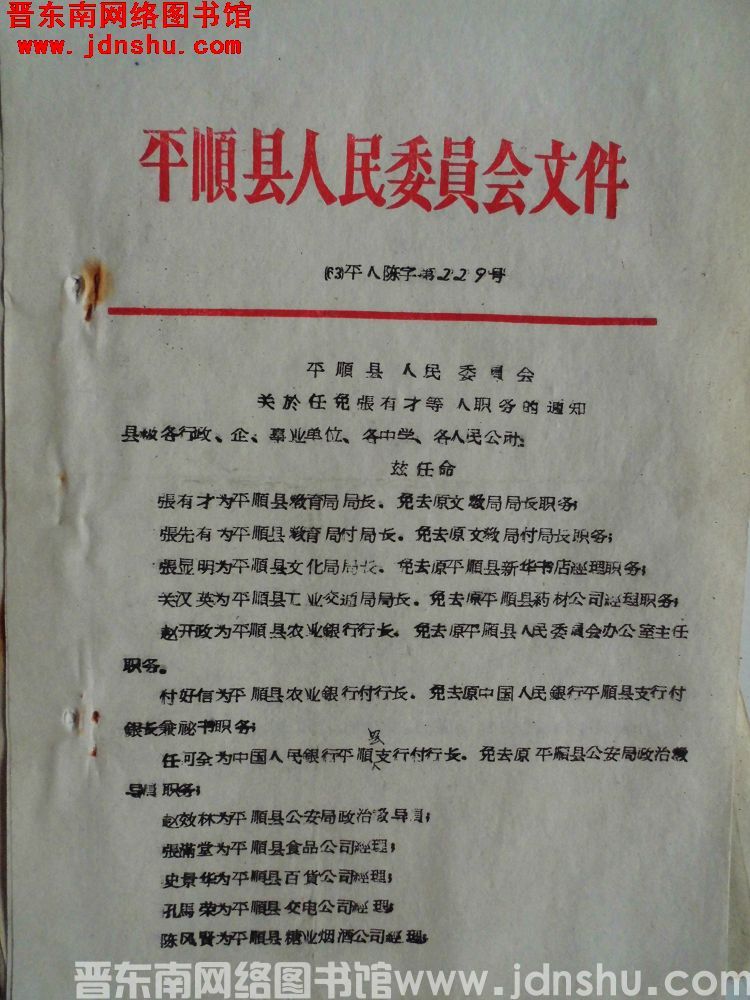 晋东南网络图书馆
www.jdnshu.com
平順县人民委員会文件
(63)平人陈字第229号
平順县人民委員会
关於任免張有才等人职务的通知
县级各行政、企、事业单位、各中学、各人民公社:
玆任命
張有才为平順县教育局局长。免去原文教局局长职务;
張先有为平順县教育局付局长。免去原文教局付局长职务;
張显明为平順县文化局局长。免去原平順县新华书店經理职务;
关汉英为平順县工业交通局局长。免去原平順县药材公司經理职务;
赵开政为平順县农业銀行行长。免去原平順县人民委員会办公室主任
职务。
村好信为平順县农业銀行付行长。免去原中国人民銀行平順县支行付
銀长兼祕书职务;
任可全为中国人民銀行平順县支行付行长。免去原平順县公安局政治教
导員职务;
赵效林为平順县公安局政治教导員;
張滿堂为平順县食品公司經理;
史景华为平順县百貨公司經理;
孔馬荣为平順县交电公司經理;
陈风賢为平順县糖业烟酒公司經理;
晋东南网络图书馆www.jdnshu.com